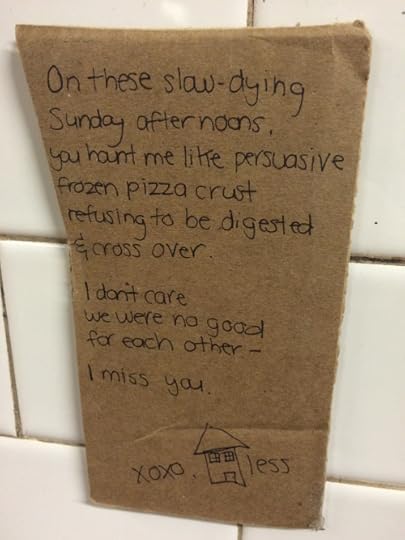 On these slow-dying
Sunday afternoons,
you haunt me like persuasive
frozen pizza crust
refusing to be digested
& cross over.
I don't care
we were no good
for each other –
I miss you.
xoxo. less